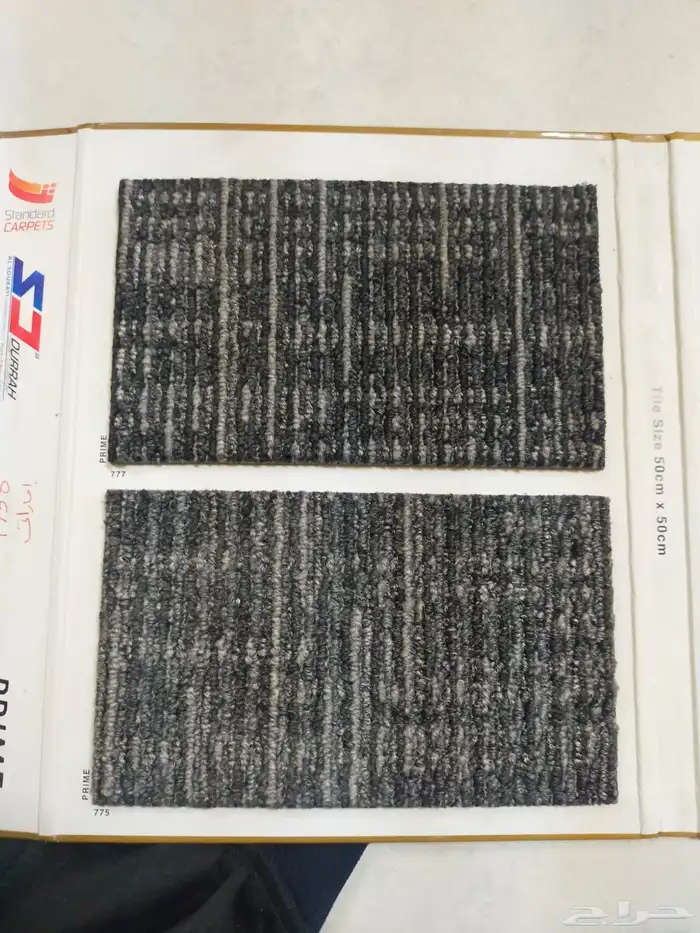 Standard
CARPETS
DURRAH
PRIME
777
PRIME
775
Tile Size 50cm x 50cm
PRIME
حراج